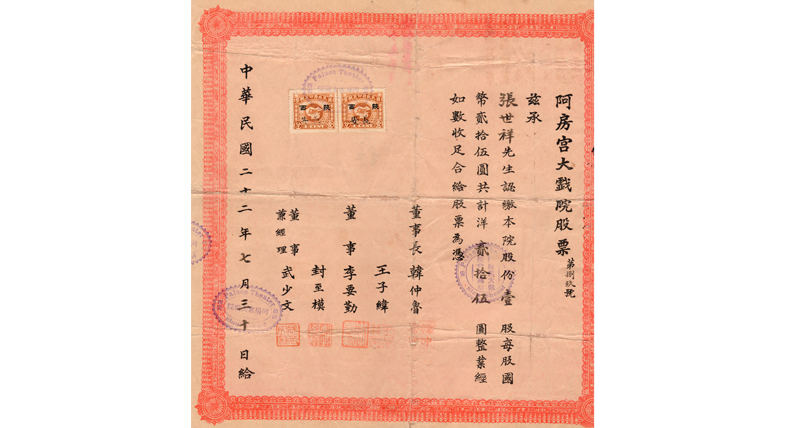 阿房宮大戲院股票
第捌玖號
茲承
張世祥先生認繳本院股份壹股每股國
幣貳拾伍圓共計洋貳拾伍圓整業經
如數收足合給股票為憑
董事長 韓仲魯
王子緯
董事 李要勤
封至模
董事兼經理 武少文
中華民國二十二年七月三十日給
Palace Theater
Palace Theater